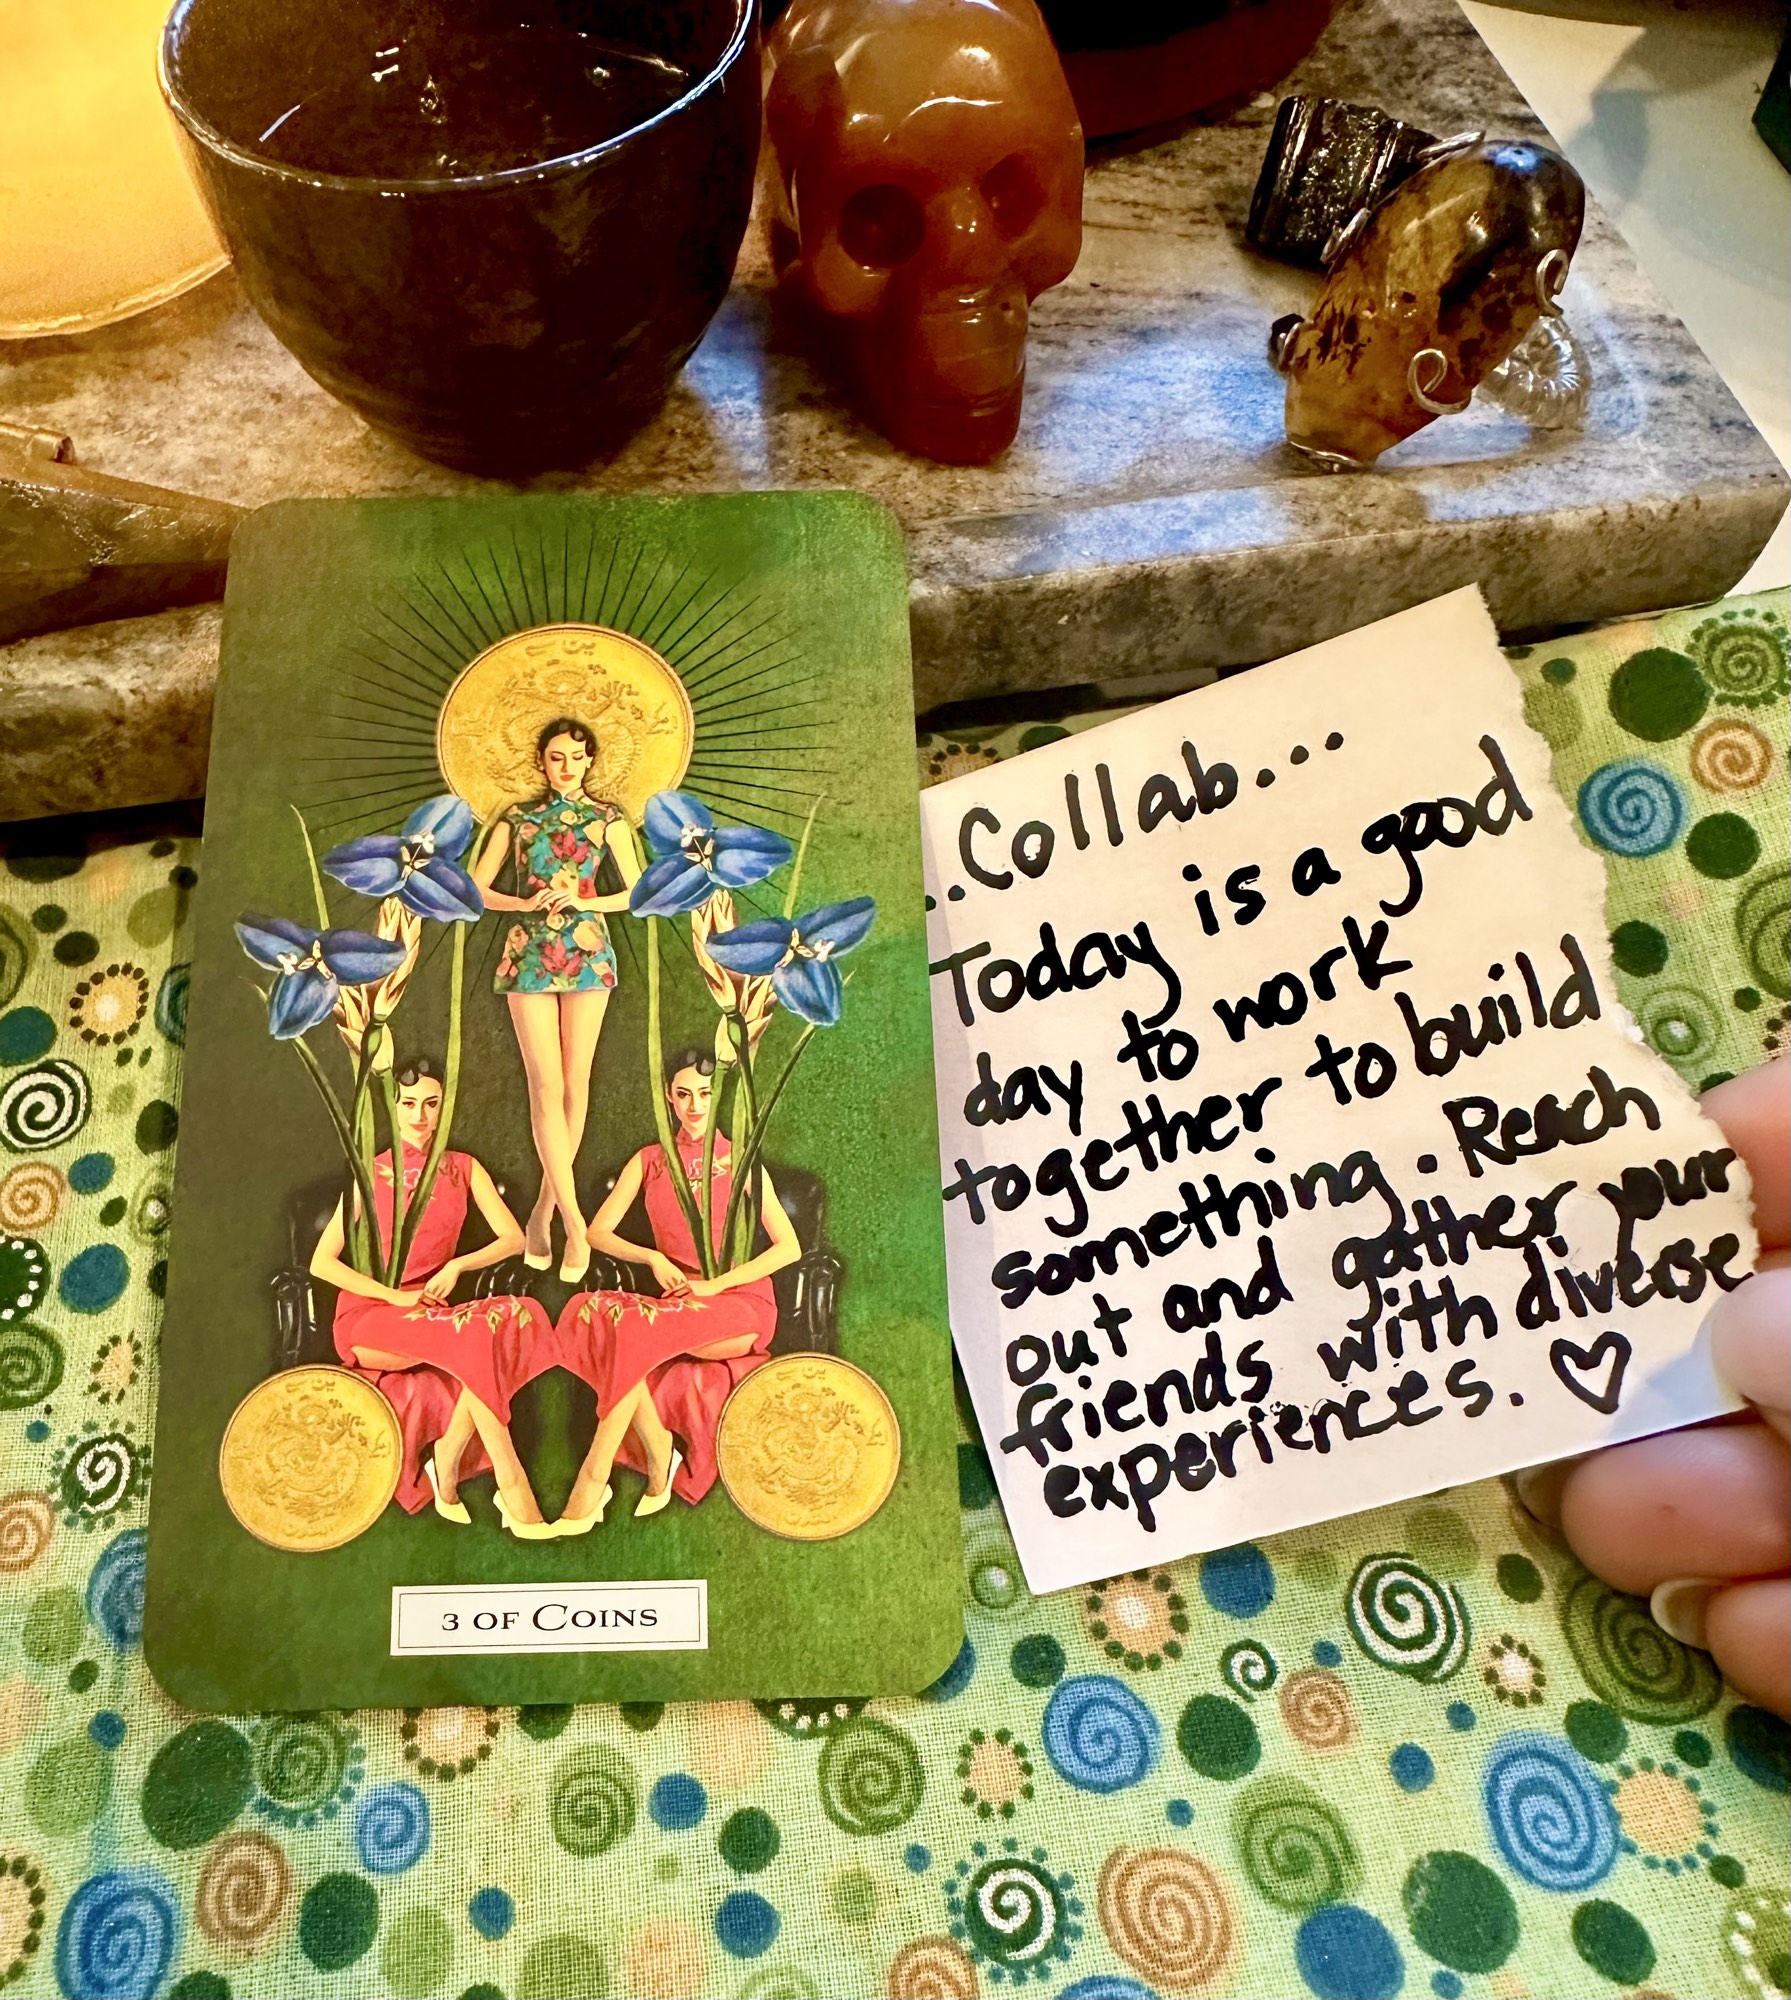 ..Collab...
Today is a good
day to work
together to build
something. Reach
out and gather your
friends with diverse
experiences. ♡
3 OF COINS